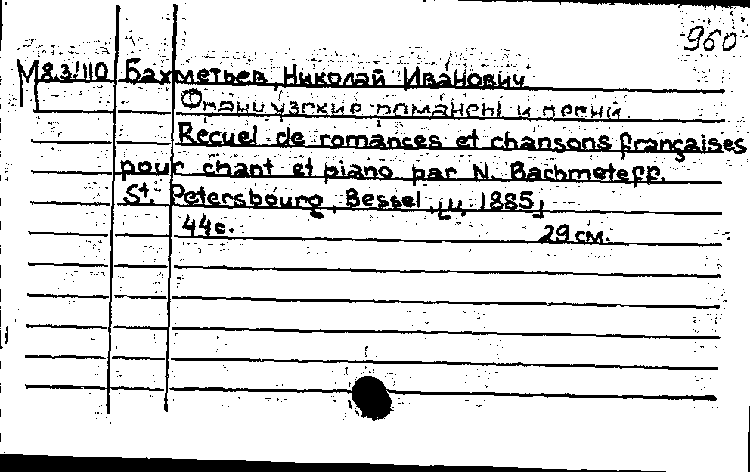 960
М 83/110 Бахметьев, Николай Иванович
Французские романсы и песни.
Recuel de romances et chansons françaises
pour chant et piano par N. Bachmeteff.
St. Petersbourg, Bessel, ц. 1885
44с. 29см.